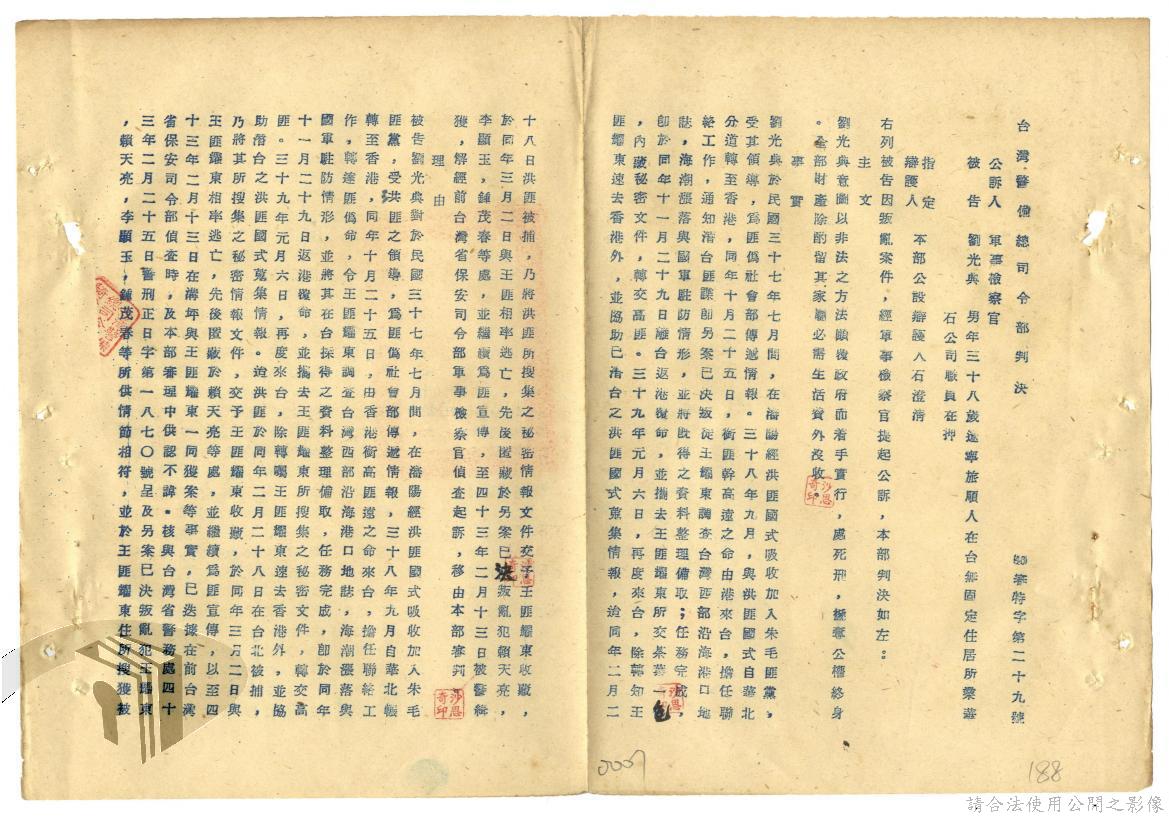 台灣警備總司令部判決
審特字第二十九號
公訴人 軍事檢察官
被告 劉光與 男年三十八歲遼寧旅順人在台無固定住居所業
石公司職員在押
指定
辯護人 本部公設辯護人石澄清
右列被告因叛亂案件,經軍事檢察官提起公訴,本部判決如左。
主文
劉光與意圖以非法之方法顛覆政府而着手實行,處死刑,褫奪公權終身
。全部財產除酌留其家屬必需生活費外沒收。
事實
劉光與於民國三十七年七月間,在瀋陽經洪匪國式吸收加入朱毛匪黨,
受其領導,爲匪僞社會部傳遞情報。三十八年九月,與洪匪國式自華北
分道轉至香港,同年十月二十五日,銜匪幹高遠之命由港來台,擔任聯
絡工作,通知潛台匪諜即另案已決叛徒王耀東調查台灣西部沿海港口地
誌,海潮漲落與國軍駐防情形,並將旣得之資料整理備取;任務完成,
即於同年十一月二十九日離台返港復命,並攜去王匪耀東所交茶葉一包
,內藏秘密文件,轉交高匪。三十九年元月六日,再度來台,除轉知王
匪耀東速去香港外,並協助已潛台之洪匪國式蒐集情報,迨同年二月二
十八日洪匪被捕,乃將洪匪所搜集之秘密情報文件交予王匪耀東收藏,
於同年三月二日與王匪相率逃亡,先後匿藏於另案已決叛亂犯賴天亮,
李顯玉,鍾茂春等處,並繼續爲匪宣傳,至四十三年二月十三日被警緝
獲,解經前台灣省保安司令部軍事檢察官偵查起訴,移由本部審判。
理由
被告劉光與對於民國三十七年七月間,在瀋陽經洪匪國式吸收加入朱毛
匪黨,受洪匪之領導,爲匪僞社會部傳遞情報,三十八年九月自華北輾
轉至香港,同年十月二十五日,由香港銜高匪遠之命來台,擔任聯絡工
作,轉達匪僞命,令王匪耀東調查台灣西部沿海港口地誌,海潮漲落與
國軍駐防情形,並將其在台採得之資料整理備取,任務完成,即於同年
十一月二十九日返港復命,並攜去王匪耀東所搜集之秘密文件,轉交高
匪。三十九年元月六日,再度來台,除轉囑王匪耀東速去香港外,並協
助潛台之洪匪國式蒐集情報。迨洪匪於同年二月二十八日在台北被捕,
乃將其所搜集之秘密情報文件,交予王匪耀東收藏,於同年三月二日與
王匪耀東相率逃亡,先後匿藏於賴天亮等處,並繼續爲匪宣傳,以至四
十三年二月十三日在溝年與王匪耀東一同獲案等事實,已迭據在前台灣
省保安司令部偵查時,及本部審理中供認不諱。核與台灣省警務處四十
三年二月二十五日警刑正日字第一八七〇號呈及另案已決叛亂犯王耀東
,賴天亮,李顯玉,鍾茂春等所供情節相符,並於王匪耀東住所搜獲被
沙恩奇印
沙恩奇印
0007
188
請合法使用公開之影像